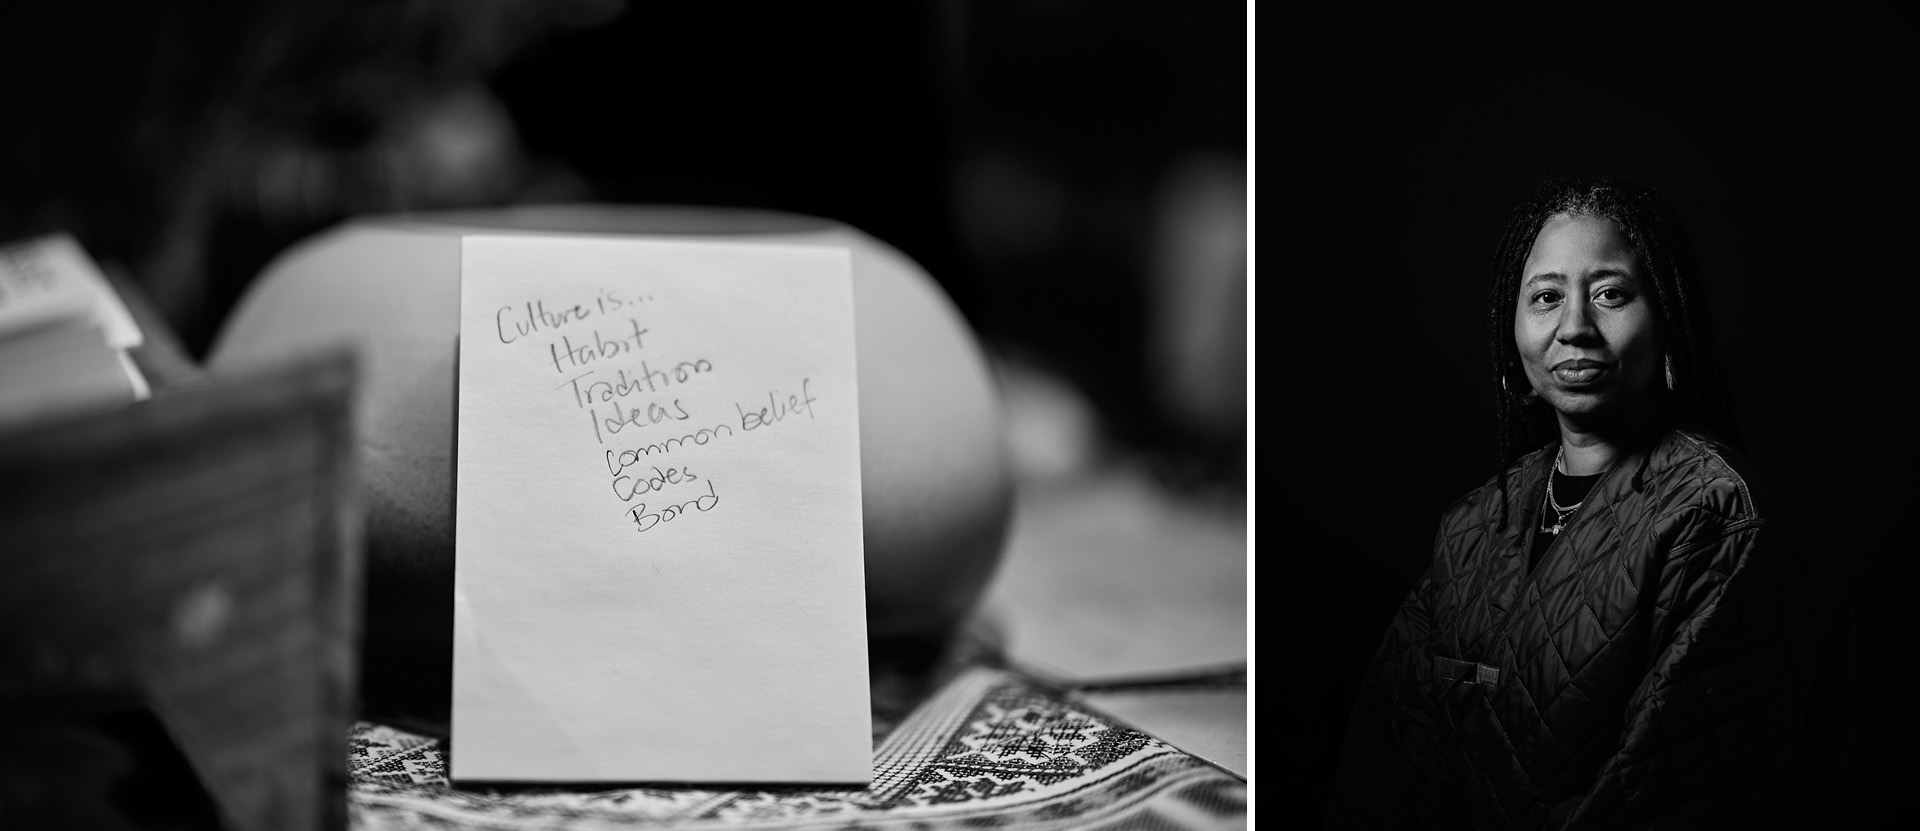 Culture is...
Habit
Tradition
Ideas
Common belief
Codes
Bond